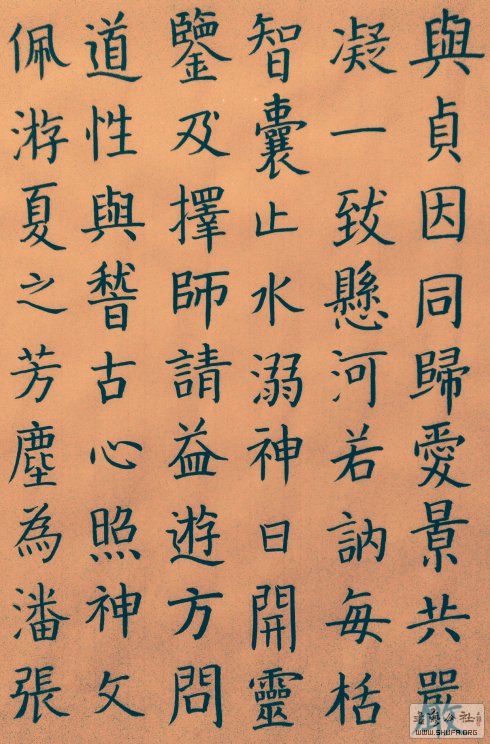 與貞因同歸愛景共嚴
凝一致懸河若訥每栝
智囊止水溺神日開靈
鑒及擇師請益遊方問
道性與稽古心照神文
佩游夏之芳塵為潘張
书法公社
WWW.SHUFA.ORG